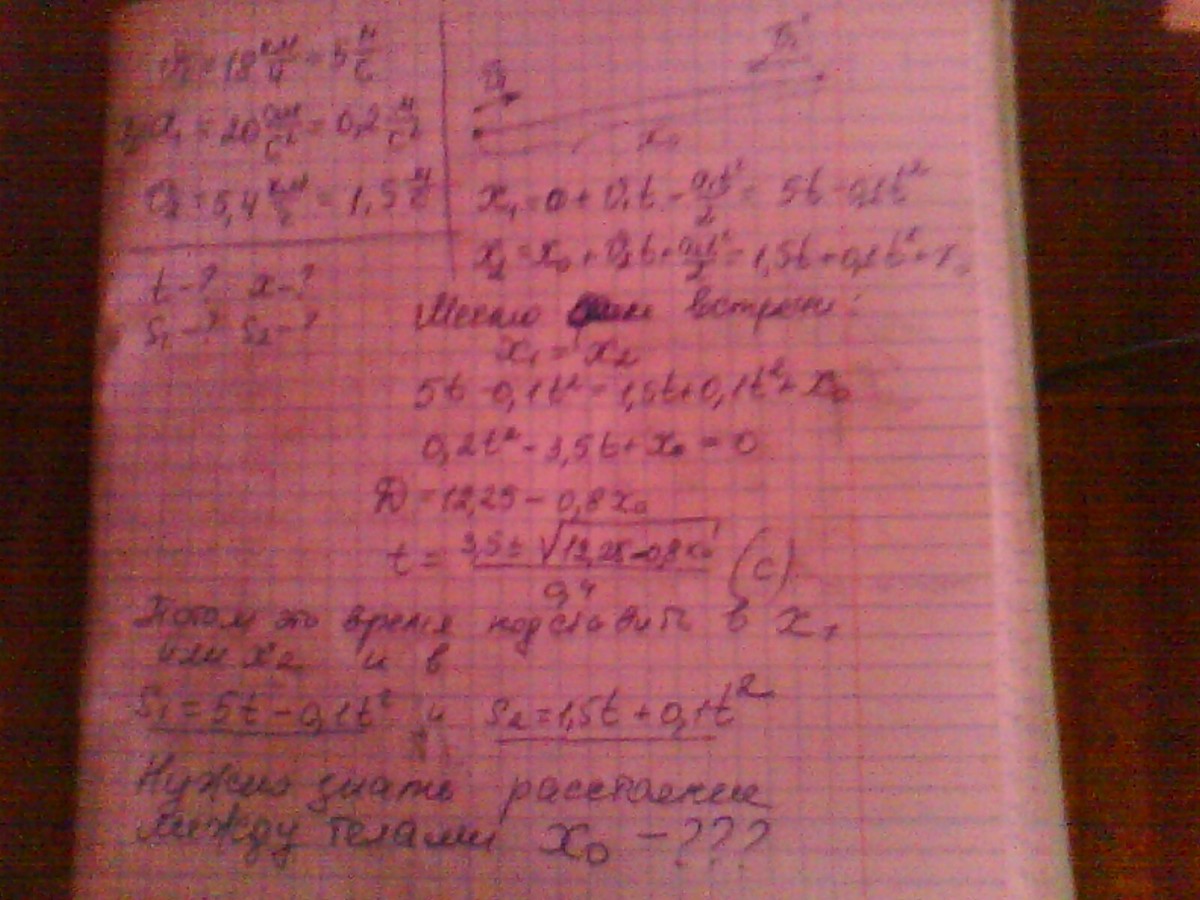 υ₁ = 18 км/ч = 5 м/с
a₁ = 20 см/с² = 0,2 м/с²
υ₂ = 5,4 км/ч = 1,5 м/с
t - ? x - ?
S₁ - ? S₂ - ?
x₀
x₁ = 0 + υ₁t - a₁t²/2 = 5t - 0,1t²
x₂ = x₀ + υ₂t + a₂t²/2 = 1,5t + 0,1t² + x₀
Место встречи:
x₁ = x₂
5t - 0,1t² = 1,5t + 0,1t² + x₀
0,2t² - 3,5t + x₀ = 0
D = 12,25 - 0,8x₀
t = (3,5 ± √(12,25 - 0,8x₀))/0,4 (с).
Потом это время подставить в x₁
или x₂ и в
S₁ = 5t - 0,1t² и S₂ = 1,5t + 0,1t²
Нужно знать расстояние
между телами x₀ - ???